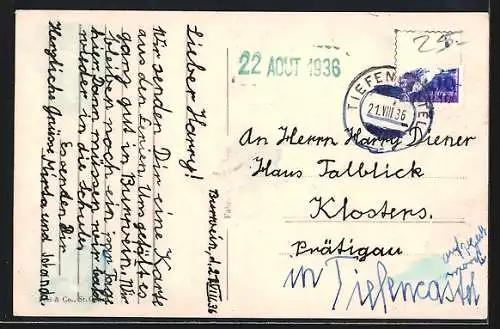 Burwein, d. 21.VIII.36
Lieber Harry!
Wir senden Dir eine Karte
aus den Ferien. Uns gefällt es
ganz gut in Burwein. Wir
bleiben noch ein paar Tage
hier. Dann müssen wir bald
wieder in die Schule.
Es senden Dir
Herzliche Grüsse, Marta und
& Co., St.
22 AOUT 1936
TIEFENCASTEL
21.VIII.36
25.-
An Herrn Harry Diener
Haus Talblick
Klosters.
Prätigau
in Tiefencastel